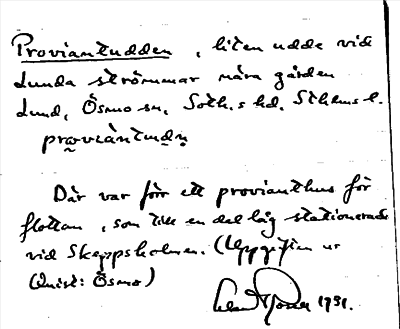 Proviantudden, liten udde vid
Lunda strömmar nära gården
Lund, Ösmo sn, Soth.s hd, Sthlms l.
prəviàntuďďn̥
Där var förr ett provianthus för
flottan, som till en del låg stationerade
vid Skeppsholmen. (Uppgiften ur
Quist: Ösmo)
1931.